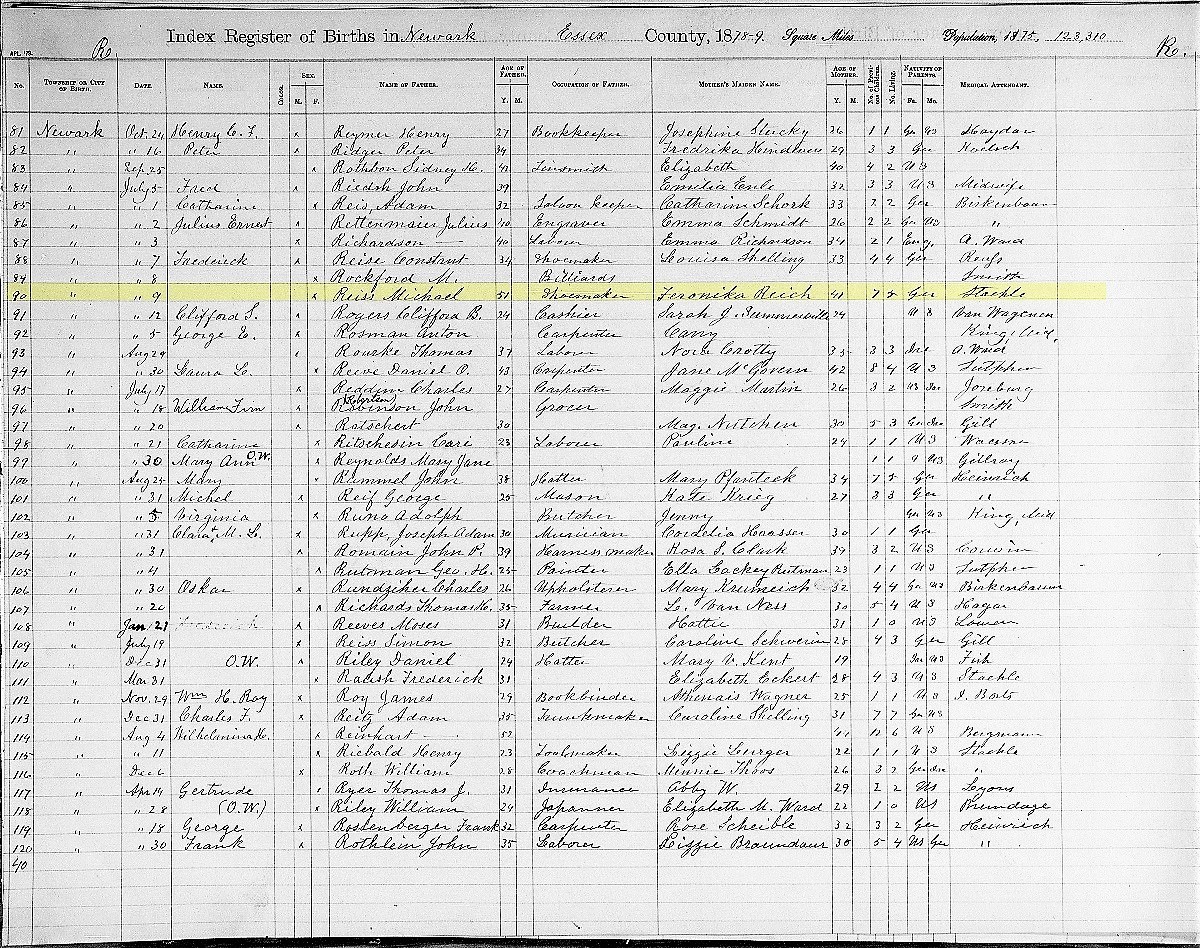 APL. '79. Ro. Index Register of Births in Newark Essex County, 1878-9. Square Miles Population, 1875, 123,310 Ro.
No. Township or City of Birth. Date. Name. Color. Sex. M. F. Name of Father. Age of Father. Y. M. Occupation of Father. Mother's Maiden Name. Age of Mother. Y. M. No. of Previous Children. No. Living. Nativity of Parents. Fa. Mo. Medical Attendant.
81 Newark Oct. 24 Henry C. F. x Reymer Henry 27 Bookkeeper Josephine 26 1 1 Ger US Haydon
82 " " 16 Peter x Ridger Peter 34 Fredrika 29 3 3 Ger
83 " Sep. 25 x Rathbon Sidney H. 41 Tinsmith Elizabeth 40 4 2 U S
84 " July 5 Fred x John 39 Emilia 32 3 3 U S Midwife
85 " " 1 Catharine x Reis, Adam 32 Saloon keeper Catharine Schork 33 2 2 Ger Birkenbaum
86 " " 2 Julius Ernest x Rettenmaier Julius 40 Engraver Emma Schmidt 26 2 2 Ger US "
87 " " 3 x Richardson — 40 Laborer Emma Richardson 34 2 1 Eng. A. Ward
88 " " 7 Frederick x Reise Constant 34 Shoemaker Louisa Shelling 33 4 4 Ger
84 " " 8 x Rockford M. Billiards Smith
90 " " 9 x Reiss Michael 51 Shoemaker Feronika Reich 41 7 5 Ger Staehle
91 " " 12 Clifford S. x Rogers Clifford B. 24 Cashier Sarah J. Summerville 24 U S Van Wagenen
92 " " 5 George E. x Rosman Anton Carpenter Carry King, Mid.
93 " Aug 29 x Rourke Thomas 37 Laborer Nora Crotty 35 3 3 Ire A. Ward
94 " " 30 Laura L. x Reeve Daniel O. 43 Carpenter Jane McGovern 42 8 4 U S Sutphen
95 " July 17 x Reddin Charles 27 Carpenter Maggie Martin 26 3 2 US Ire
96 " " 18 William Finn x (Robertson) Robinson John Grocer Smith
97 " " 20 x Ratschert 30 Mag. Nutchen 30 5 3 Gill
98 " " 21 Catharine x Ritschesin Cari 23 Laborer Pauline 24 1 1 U S
99 " " 30 Mary Ann O.W. x Reynolds Mary Jane 1 1 ? US Gillray
100 " Aug 24 Mary x Rummel John 38 Hatter Mary 34 7 5 Ger Heinrich
101 " " 31 Michel x Reif George 25 Mason Kate Krieg 27 3 3 Ger "
102 " " 5 Virginia x Adolph Butcher Jenny Ger US King, Mid
103 " " 31 Clara M. L. x Rupp, Joseph Adam 30 Musician Cordelia Haasser 30 1 1 Ger
104 " " 31 x Romain John P. 39 Harness maker Rosa S. Clark 39 3 2 U S
105 " " 4 x Rutman Geo. H. 25 Painter Ella Lackey Rutman 23 1 1 U S Sutphen
106 " " 30 Oskar x Rundziher Charles 26 Upholsterer Mary Krumeich 32 4 4 Ger US Birkenbaum
107 " " 20 x Richards Thomas H. 35 Farmer L. Van Ness 30 5 4 U S Hagar
108 " Jan 121 Frederick x Reeves Moses 31 Builder Hattie 31 1 0 U S
109 " July 19 x Reiss Simon 32 Butcher Caroline Schwerin 28 4 3 Ger Gill
110 " Dec 31 O.W. x Riley Daniel 24 Hatter Mary V. Kent 19 Ire US Fish
111 " Mar 31 x Raiish Frederick 31 Elizabeth Eckert 28 4 3 U S Staehle
112 " Nov. 29 Wm H. Roy x Roy James 29 Bookbinder Athenais Wagner 25 1 U S
113 " Dec 31 Charles F. x Reitz Adam 35 Trunkmaker Caroline Shelling 31 7 7 Ger US
114 " Aug 4 Wilhelmina H. x Reinhart — 52 41 12 6 U S Bergmann
115 " " 11 x Riebald Henry 23 Toolmaker Lizzie Lurger 22 1 1 U S Staehle
116 " Dec 6 x Roth William 28 Coachman Minnie Thoos 26 3 2 "
117 " Apr 14 Gertrude x Ryer Thomas J. 31 Insurance Abby W. 29 2 2 US Lyons
118 " " 28 (O.W.) x Riley William 24 Japanner Elizabeth M. Ward 22 1 0 US Brundage
119 " " 18 George x Rostenberger Frank 32 Carpenter Rose Scheible 32 3 2 Ger Heinrich
120 " " 30 Frank x Rothlein John 35 Laborer Lizzie Braundaur 30 5 4 US Ger "
40